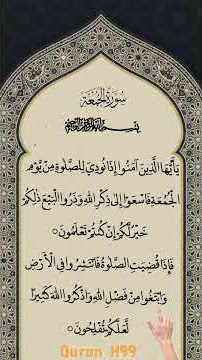 سورة الجمعة
بسم الله الرحمن الرحيم
يَٰٓأَيُّهَا الَّذِينَ آمَنُوا إِذَا نُودِيَ لِلصَّلَوٰةِ مِنْ يَوْمِ
الْجُمُعَةِ فَاسْعَوْا إِلَىٰ ذِكْرِ اللَّهِ وَذَرُوا الْبَيْعَ ذَٰلِكُمْ
خَيْرٌ لَكُمْ إِنْ كُنْتُمْ تَعْلَمُونَ
فَإِذَا قُضِيَتِ الصَّلَوٰةُ فَانْتَشِرُوا فِي الْأَرْضِ
وَابْتَغُوا مِنْ فَضْلِ اللَّهِ وَاذْكُرُوا اللَّهَ كَثِيرًا
لَعَلَّكُمْ تُفْلِحُونَ
Quran H99